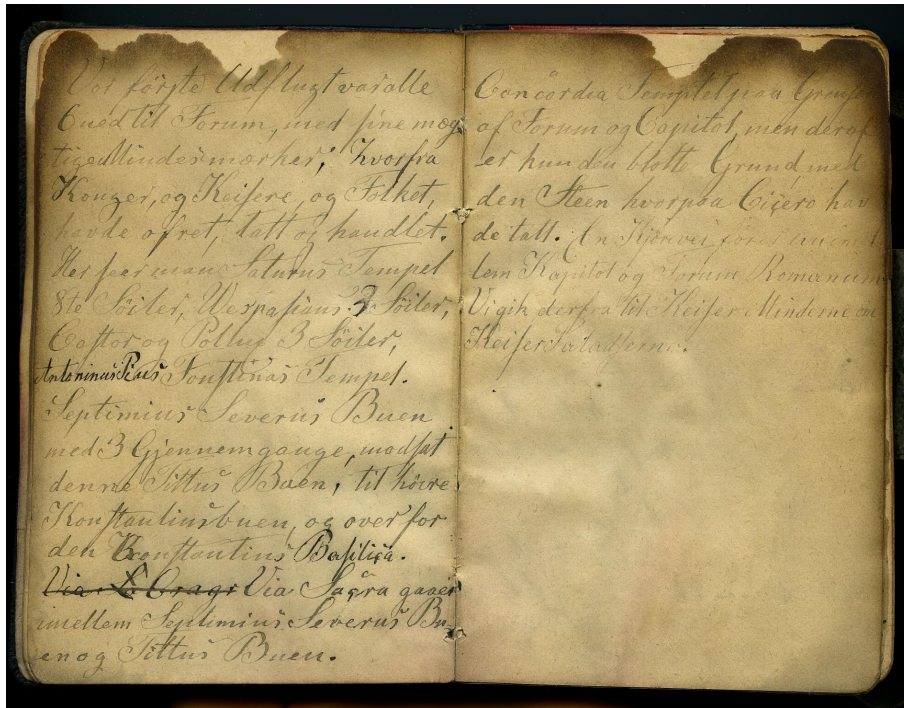 Vor første Udflugt var alle
6 ned til Forum, med sine mæg
tige Mindesmærker, hvorfra
Konger, og Keisere, og Folket,
havde ofret, talt og handlet.
Her seer man Saturus Tempel
8te Söiler, Wespasians 3 Söiler,
Castor og Pollux 3 Söiler,
Antoninus Pius Fonstinas Tempel.
Septimius Severus Buen
med 3 Gjennemgange, modsat
denne Tittus Buen, til høire
Konstantinsbuen, og over for
den Konstantins Basilica.
Via Sacra gaaer
imellem Septimius Severus Bu
en og Tittus Buen.
Concordia Templet paa Grensen
af Forum og Capitol, men deraf
er kun den blotte Grund med
den Steen hvorpaa Cicero hav
de talt. En Kjørevei fører imel
lem Kapitol og Forum Romanum
Vi gik derfra til Keiser Minderne om
Keiser Paladserne.